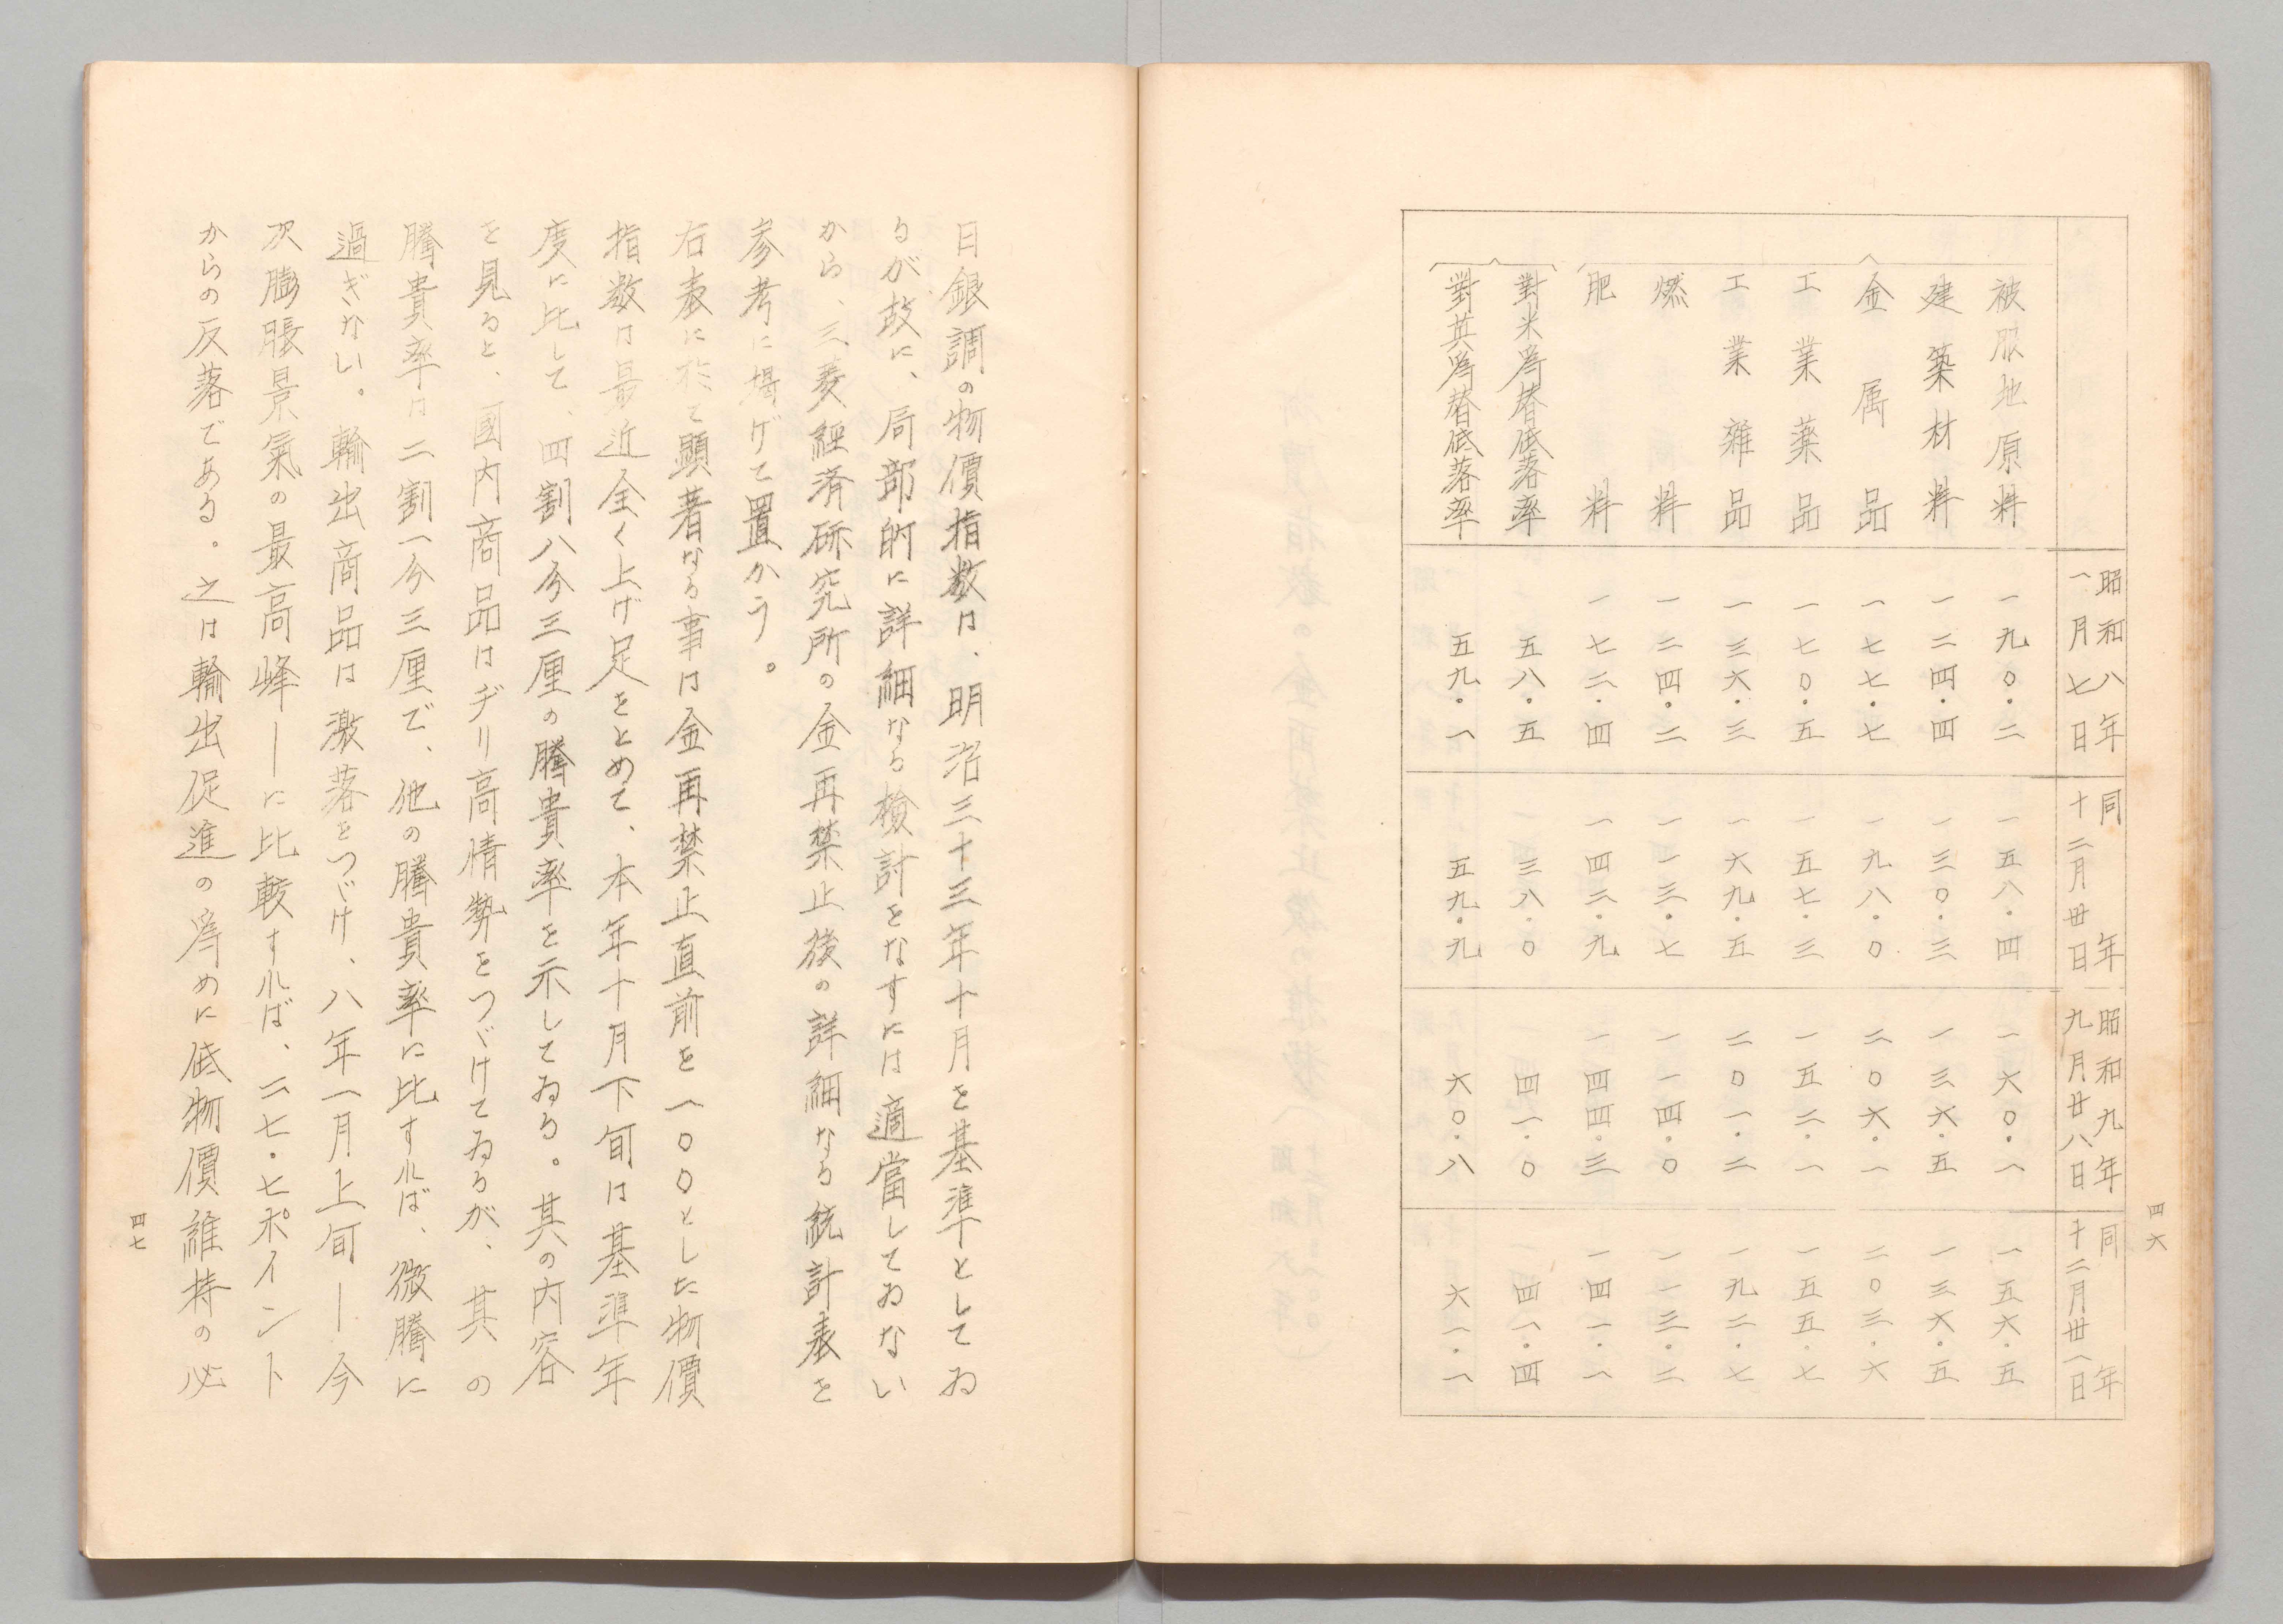 四六
昭和八年一月七日
同年十二月卅日
昭和九年九月廿八日
同年十二月卅一日
被服地原料 一九〇・二 一五八・四 一六〇・一 一五六・五
建築材料 一二四・四 一三〇・三 一三六・五 一三六・五
金属品 一七七・七 一九八・〇 二〇六・一 二〇三・六
工業薬品 一七〇・五 一五七・三 一五二・一 一五五・七
工業雑品 一三六・三 一六九・五 二〇一・二 一九二・七
燃料 一二四・二 一一三・七 一一四・〇 一一三・二
肥料 一七二・四 一四二・九 一四四・三 一四一・一
對米爲替低落率 五八・五 三八・〇 四一・〇 四一・四
對英爲替低落率 五九・一 五九・九 六〇・八 六一・一
日銀調の物價指数は、明治三十三年十月を基準としてゐ
るが故に、局部的に詳細なる検討をなすには適當してゐない
から、三菱經済研究所の金再禁止後の詳細なる統計表を
参考に掲げて置かう。
右表に於て顕著なる事は金再禁止直前を一〇〇とした物價
指数は最近全く上げ足をとめて、本年十月下旬は基準年
度に比して、四割八分三厘の騰貴率を示してゐる。其の内容
を見ると、國内商品はヂリ高情勢をつゞけてゐるが、其の
騰貴率は二割一分三厘で、他の騰貴率に比すれば、微騰に
過ぎない。輸出商品は激落をつゞけ、八年一月上旬―今
次膨脹景氣の最高峰―に比較すれば、二七・七ポイント
からの反落である。之は輸出促進の爲めに低物價維持の必
四七